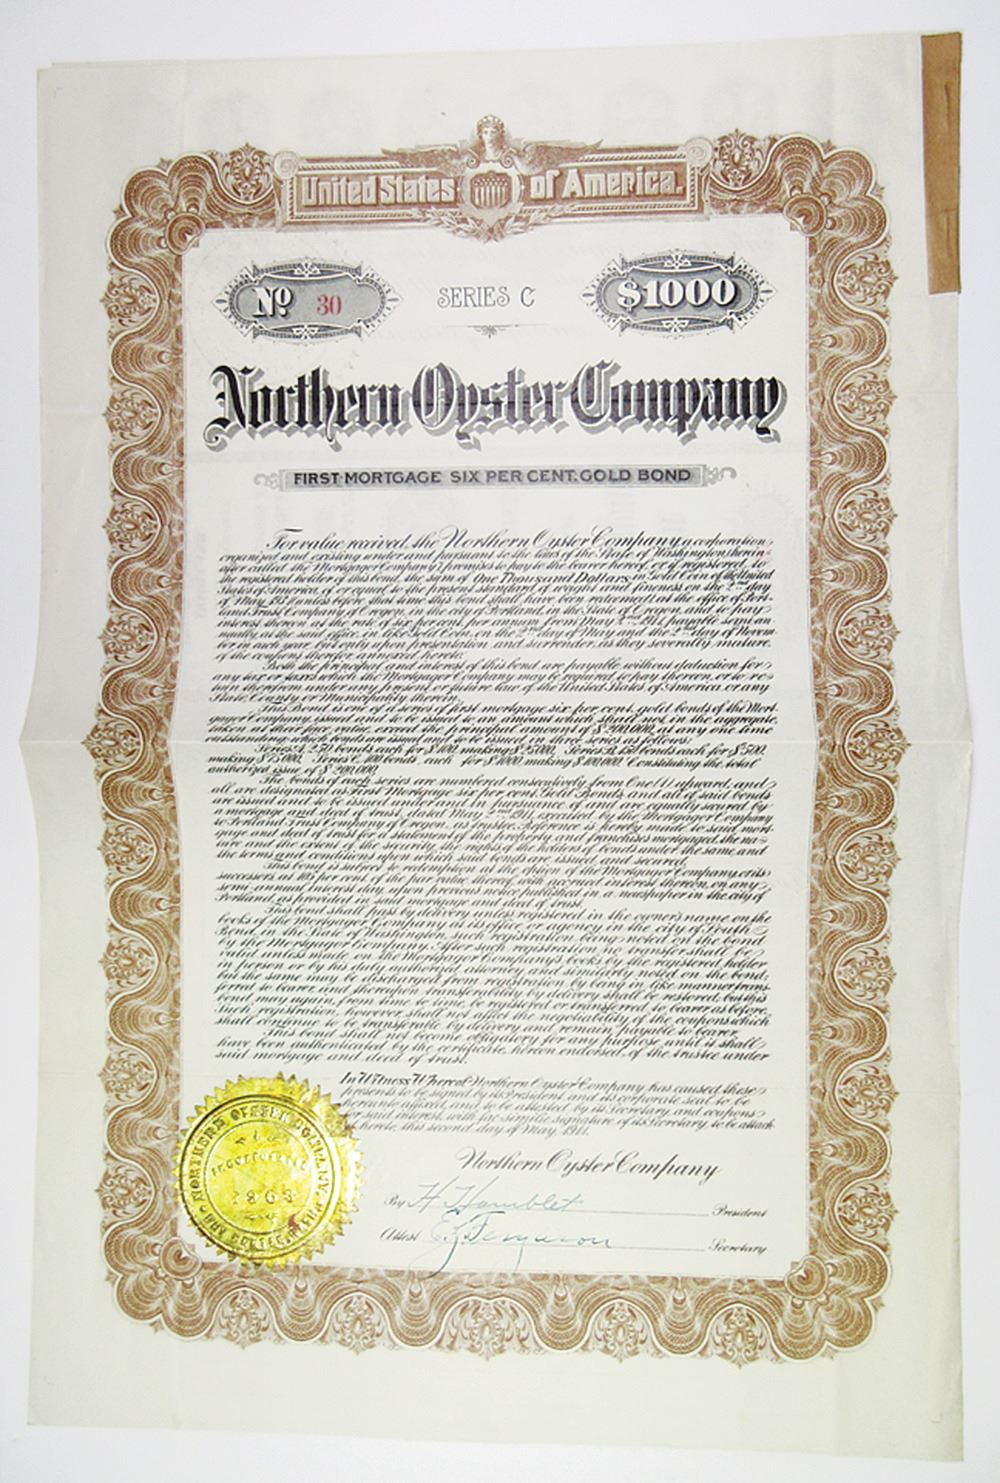 United States of America.
No 30
SERIES C
$1000
Northern Oyster Company
FIRST MORTGAGE SIX PER CENT. GOLD BOND
For value received, the Northern Oyster Company, a corporation
organized and existing under and pursuant to the laws of the State of Washington, (herein
after called the Mortgagor Company) promises to pay to the bearer hereof, or if registered, to
the registered holder of this bond, the sum of One Thousand Dollars, in Gold Coin of the United
States of America, of or equal to the present standard of weight and fineness on the 2nd day
of May, unless before that time this bond shall have been redeemed at the office of Port-
land Trust Company of Oregon, in the city of Portland, in the State of Oregon, and to pay
interest thereon at the rate of six per cent. per annum from May 2nd 1911, payable semi an-
nually, at the said office, in like Gold Coin, on the 2nd day of May and the 2nd day of Novem-
ber in each year, but only upon presentation and surrender, as they severally mature,
of the coupons therefor annexed hereto.
Both the principal and interest of this bond are payable without deduction for
any tax or taxes which the Mortgagor Company may be required to pay thereon, or to re-
tain therefrom under any present or future law of the United States of America, or any
State, County or Municipality therein.
This Bond is one of a series of first mortgage six per cent. gold bonds of the Mort-
gagor Company, issued and to be issued to an amount which shall not in the aggregate,
taken at their face value, exceed the principal amount of $200,000, at any one time
outstanding, which bonds are issued and to be issued in three series as follows:
Series A, 250 bonds each for $100, making $25000. Series B, 150 bonds each for $500,
making $75000. Series C, 100 bonds each for $1000, making $100,000. Constituting the total
authorized issue of $200,000.
The bonds of each series are numbered consecutively from One (1) upward, and
all are designated as First Mortgage six per cent. Gold Bonds, and all of said bonds
are issued and to be issued under and in pursuance of and are equally secured by
a mortgage and deed of trust, dated May 2nd 1911, executed by the Mortgagor Company
to Portland Trust Company of Oregon, as trustee. Reference is hereby made to said mort-
gage and deed of trust for a statement of the property and franchises mortgaged, the na-
ture and the extent of the security, the rights of the holders of bonds under the same, and
the terms and conditions upon which said bonds are issued and secured.
This bond is subject to redemption at the option of the Mortgagor Company, or its
successors, at 105 per cent. of the par value thereof, with accrued interest thereon, on any
semi-annual interest day, upon previous notice published in a newspaper in the city of
Portland, as provided in said mortgage and deed of trust.
This bond shall pass by delivery unless registered in the owner's name on the
books of the Mortgagor Company at its office or agency in the city of South
Bend, in the State of Washington, such registration being noted on the bond
by the Mortgagor Company. After such registration, no transfer shall be
valid unless made on the Mortgagor Company's books by the registered holder
in person or by his duly authorized attorney and similarly noted on the bond;
but the same may be discharged from registration by being in like manner trans-
ferred to bearer, and thereupon transferability by delivery shall be restored, but this
bond may again, from time to time, be registered or transferred to bearer as before.
Such registration, however, shall not affect the negotiability of the coupons, which
shall continue to be transferable by delivery and remain payable to bearer.
This bond shall not become obligatory for any purpose until it shall
have been authenticated by the certificate, hereon endorsed, of the trustee under
said mortgage and deed of trust.
In Witness Whereof Northern Oyster Company has caused these
presents to be signed by its President and its corporate seal to be
hereunto affixed, and to be attested by its Secretary, and coupons
for said interest, with fac-simile signature of its Secretary, to be attach
ed hereto, this second day of May, 1911.
Northern Oyster Company
By H. Hamblet President
Attest E. Z. Ferguson Secretary
NORTHERN OYSTER COMPANY
INCORPORATED